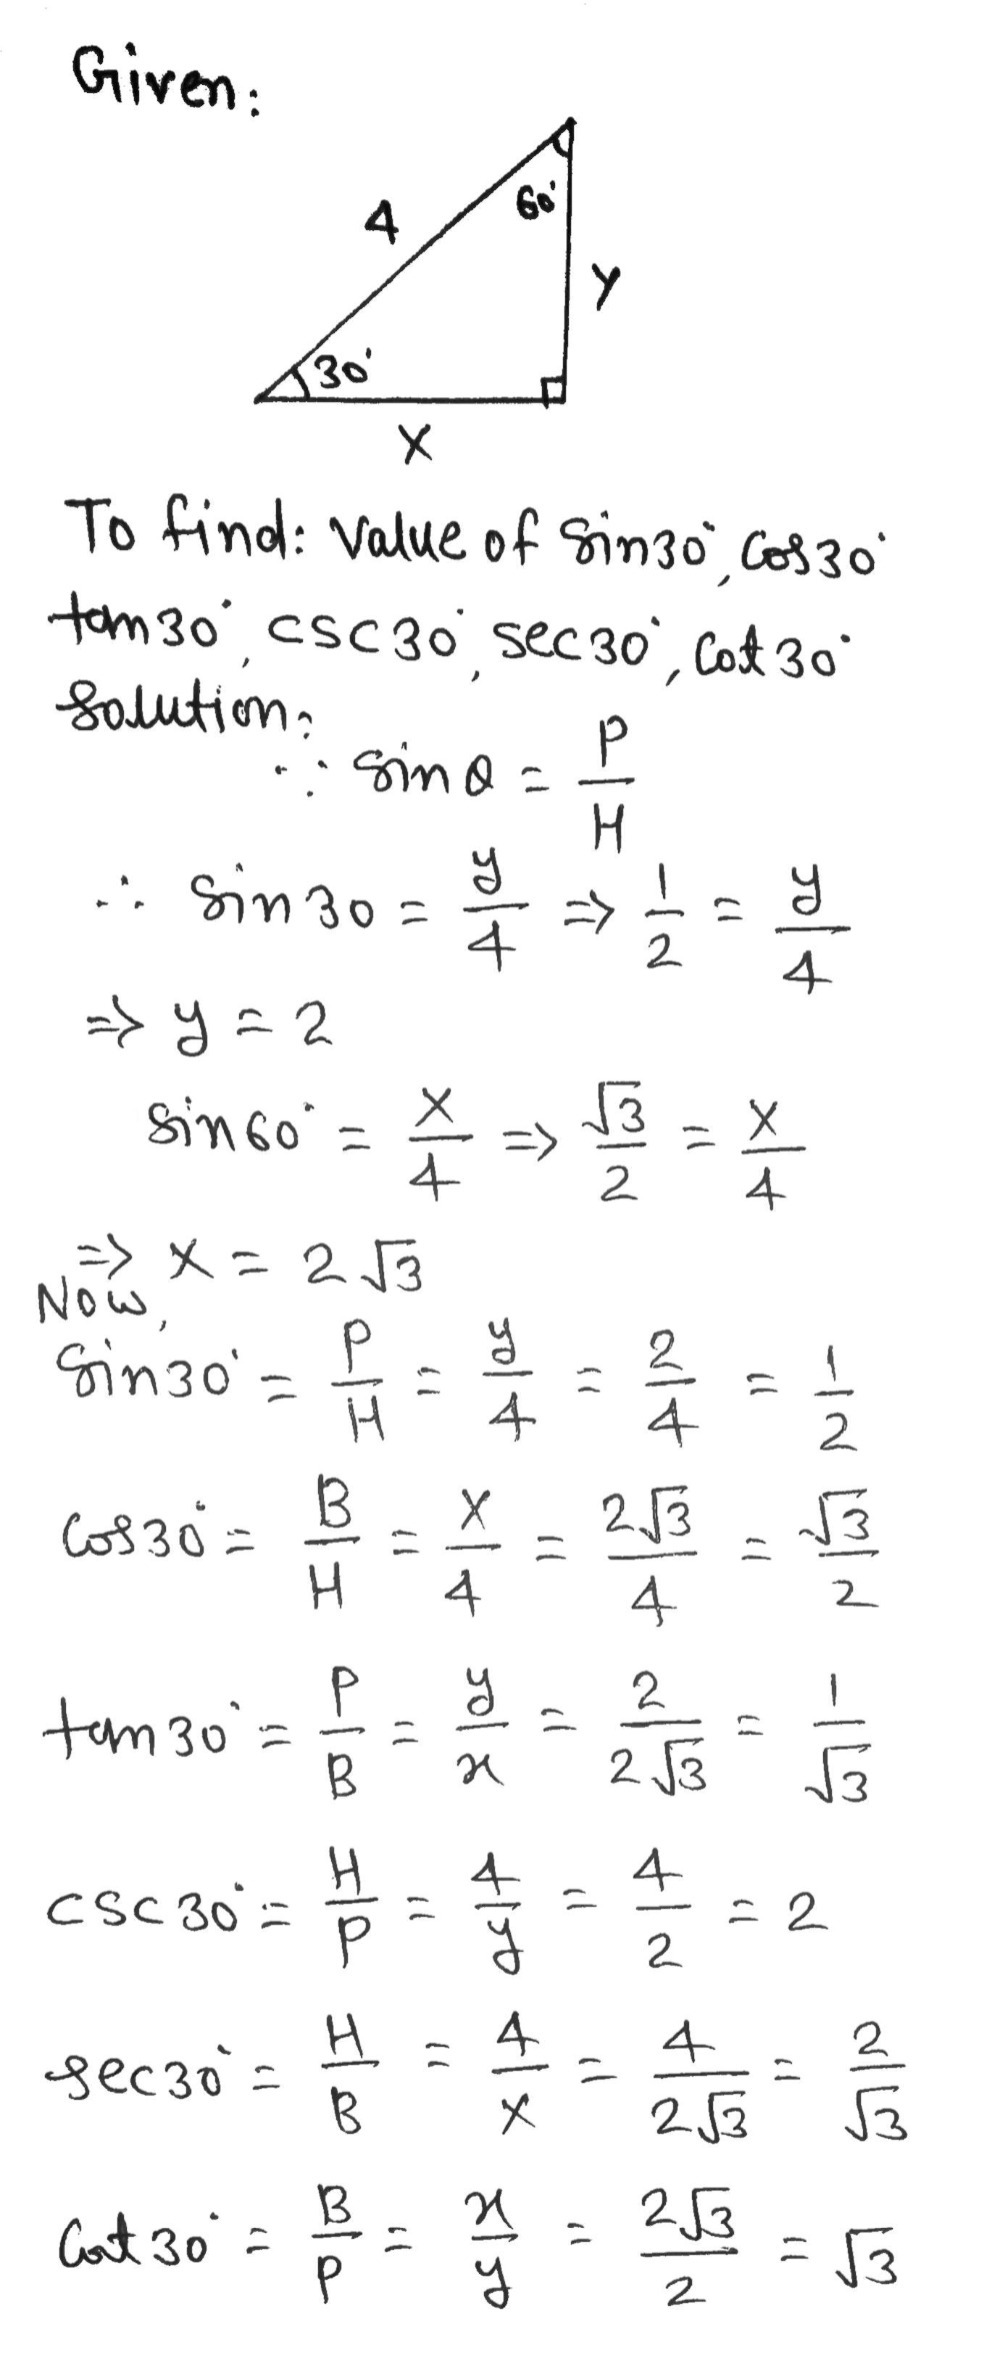 Given:
4
60°
y
30°
x
To find: Value of Sin30°, Cos30°
tan30°, csc30°, sec30°, Cot30°
Solution:
∵ Sinθ = P/H
∴ Sin30 = y/4 ⇒ 1/2 = y/4
⇒ y = 2
Sin60° = x/4 ⇒ √3/2 = x/4
⇒ x = 2√3
Now,
Sin30° = P/H = y/4 = 2/4 = 1/2
Cos30° = B/H = x/4 = 2√3/4 = √3/2
tan30° = P/B = y/x = 2/2√3 = 1/√3
csc30° = H/P = 4/y = 4/2 = 2
sec30° = H/B = 4/x = 4/2√3 = 2/√3
Cot30° = B/P = x/y = 2√3/2 = √3